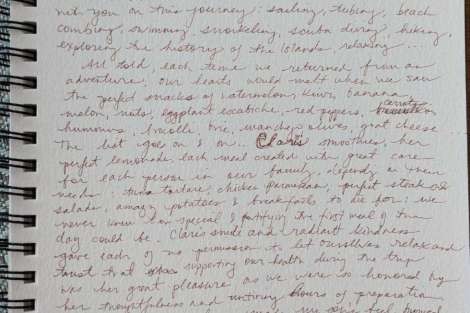 met you on this journey: sailing, tubing, beach
combing, swimming, snorkeling, scuba diving, hiking,
exploring the history of the islands, relaxing...
All told each time we returned from an
adventure, our hearts would melt when we saw
the perfect snacks of watermelon, kiwi, banana
melon, nuts, eggplant escabiche, red peppers, carrots
humours, brie, manchego olives, goat cheese
The list goes on & on. Clair's smoothies, her
perfect lemonade, each meal created with great care
for each person in our family, depending on their
needs. tuna tartare, chicken parmesan, perfect steak
salads, amazing potatoes & breakfasts to die for; we
never knew how special & fortifying the first meal of the
day could be. Clair's smile and radiant kindness
gave each of us permission to let ourselves relax and
trust that supporting our health during the trip
was her great pleasure as we were so honored by
her thoughtfulness and untiring hours of preparation
made us feel